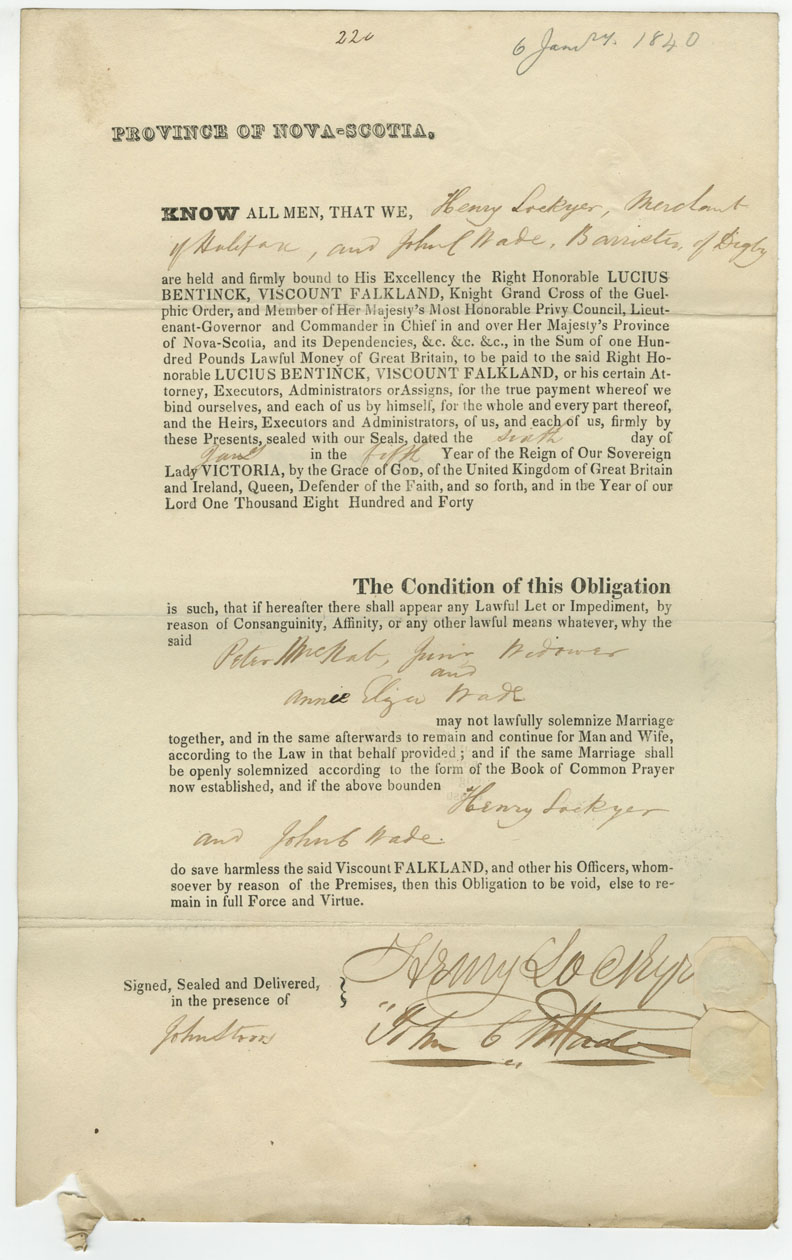 220
6 Jany. 1840
PROVINCE OF NOVA-SCOTIA.
KNOW ALL MEN, THAT WE, Henry Lockyer, Merchant
of Halifax, and John C Wade, Barrister, of Digby
are held and firmly bound to His Excellency the Right Honorable LUCIUS
BENTINCK, VISCOUNT FALKLAND, Knight Grand Cross of the Guel-
phic Order, and Member of Her Majesty's Most Honorable Privy Council, Lieut-
enant-Governor and Commander in Chief in and over Her Majesty's Province
of Nova-Scotia, and its Dependencies, &c. &c. &c., in the Sum of one Hun-
dred Pounds Lawful Money of Great Britain, to be paid to the said Right Ho-
norable LUCIUS BENTINCK, VISCOUNT FALKLAND, or his certain At-
torney, Executors, Administrators or Assigns, for the true payment whereof we
bind ourselves, and each of us by himself, for the whole and every part thereof,
and the Heirs, Executors and Administrators, of us, and each of us, firmly by
these Presents, sealed with our Seals, dated the sixth day of
in the fifth Year of the Reign of Our Sovereign
Lady VICTORIA, by the Grace of GOD, of the United Kingdom of Great Britain
and Ireland, Queen, Defender of the Faith, and so forth, and in the Year of our
Lord One Thousand Eight Hundred and Forty
The Condition of this Obligation
is such, that if hereafter there shall appear any Lawful Let or Impediment, by
reason of Consanguinity, Affinity, or any other lawful means whatever, why the
said
Peter McNab, Junr Widower
and
Annie Eliza Wade
may not lawfully solemnize Marriage
together, and in the same afterwards to remain and continue for Man and Wife,
according to the Law in that behalf provided; and if the same Marriage shall
be openly solemnized according to the form of the Book of Common Prayer
now established, and if the above bounden
Henry Lockyer
and John C Wade.
do save harmless the said Viscount FALKLAND, and other his Officers, whom-
soever by reason of the Premises, then this Obligation to be void, else to re-
main in full Force and Virtue.
Henry Lockyer
Signed, Sealed and Delivered,
in the presence of
John C Wade
John